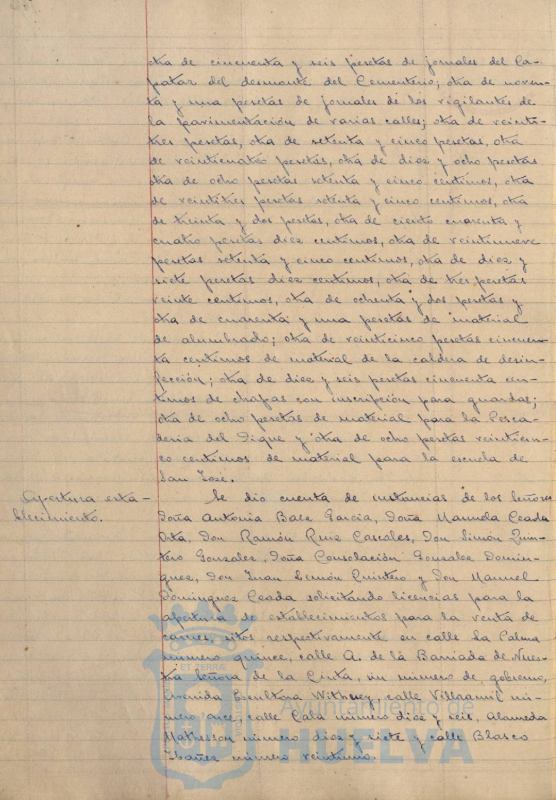 otra de cincuenta y seis pesetas de jornales del Ca-
pataz del desmonte del Cementerio; otra de noven-
ta y una pesetas de jornales de los vigilantes de
la pavimentación de varias calles; otra de veinti-
tres pesetas, otra de setenta y cinco pesetas, otra
de veinticuatro pesetas, otra de diez y ocho pesetas
otra de ocho pesetas setenta y cinco centimos, otra
de veintitres pesetas setenta y cinco centimos, otra
de treinta y dos pesetas, otra de ciento cuarenta y
cuatro pesetas diez centimos, otra de veintinueve
pesetas setenta y cinco centimos, otra de diez y
siete pesetas diez centimos, otra de tres pesetas
veinte centimos, otra de ochenta y dos pesetas y
otra de cuarenta y una pesetas de material
de alumbrado; otra de veinticinco pesetas cincuen-
ta centimos de material de la caldera de desin-
fección; otra de diez y seis pesetas cincuenta cen-
timos de chapas con inscripción para guardas;
otra de ocho pesetas de material para la Pesca-
deria del Dique y otra de ocho pesetas veinticin-
co centimos de material para la escuela de
San José.
Apertura esta-
blecimiento.
Se dio cuenta de instancias de los Señores
Doña Antonia Baez Garcia, Doña Manuela Ceada
Orta, Don Ramón Ruiz Cascales, Don Simón Quin-
tero Gonzalez, Doña Consolación Gonzalez Domin-
guez, Don Juan Limón Quintero y Don Manuel
Dominguez Ceada solicitando licencias para la
apertura de establecimientos para la venta de
carnes, sitos respectivamente en calle La Palma
numero quince, calle A. de la Barriada de Nues-
tra Señora de la Cinta, sin numero de gobierno,
Avenida Escultora Withney, calle Villamil nú-
mero once, calle Cala número diez y seis, Alameda
Mathesson número diez y siete y calle Blasco
Ibañez número veintiuno.
ET TERRA
Ayuntamiento de
HUELVA